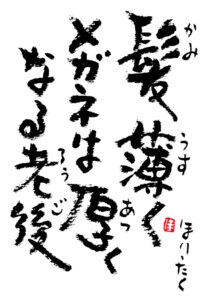 髪薄く
メガネは厚く
なる老後
かみ
うす
あつ
ろうご
ほり・たく
ほ